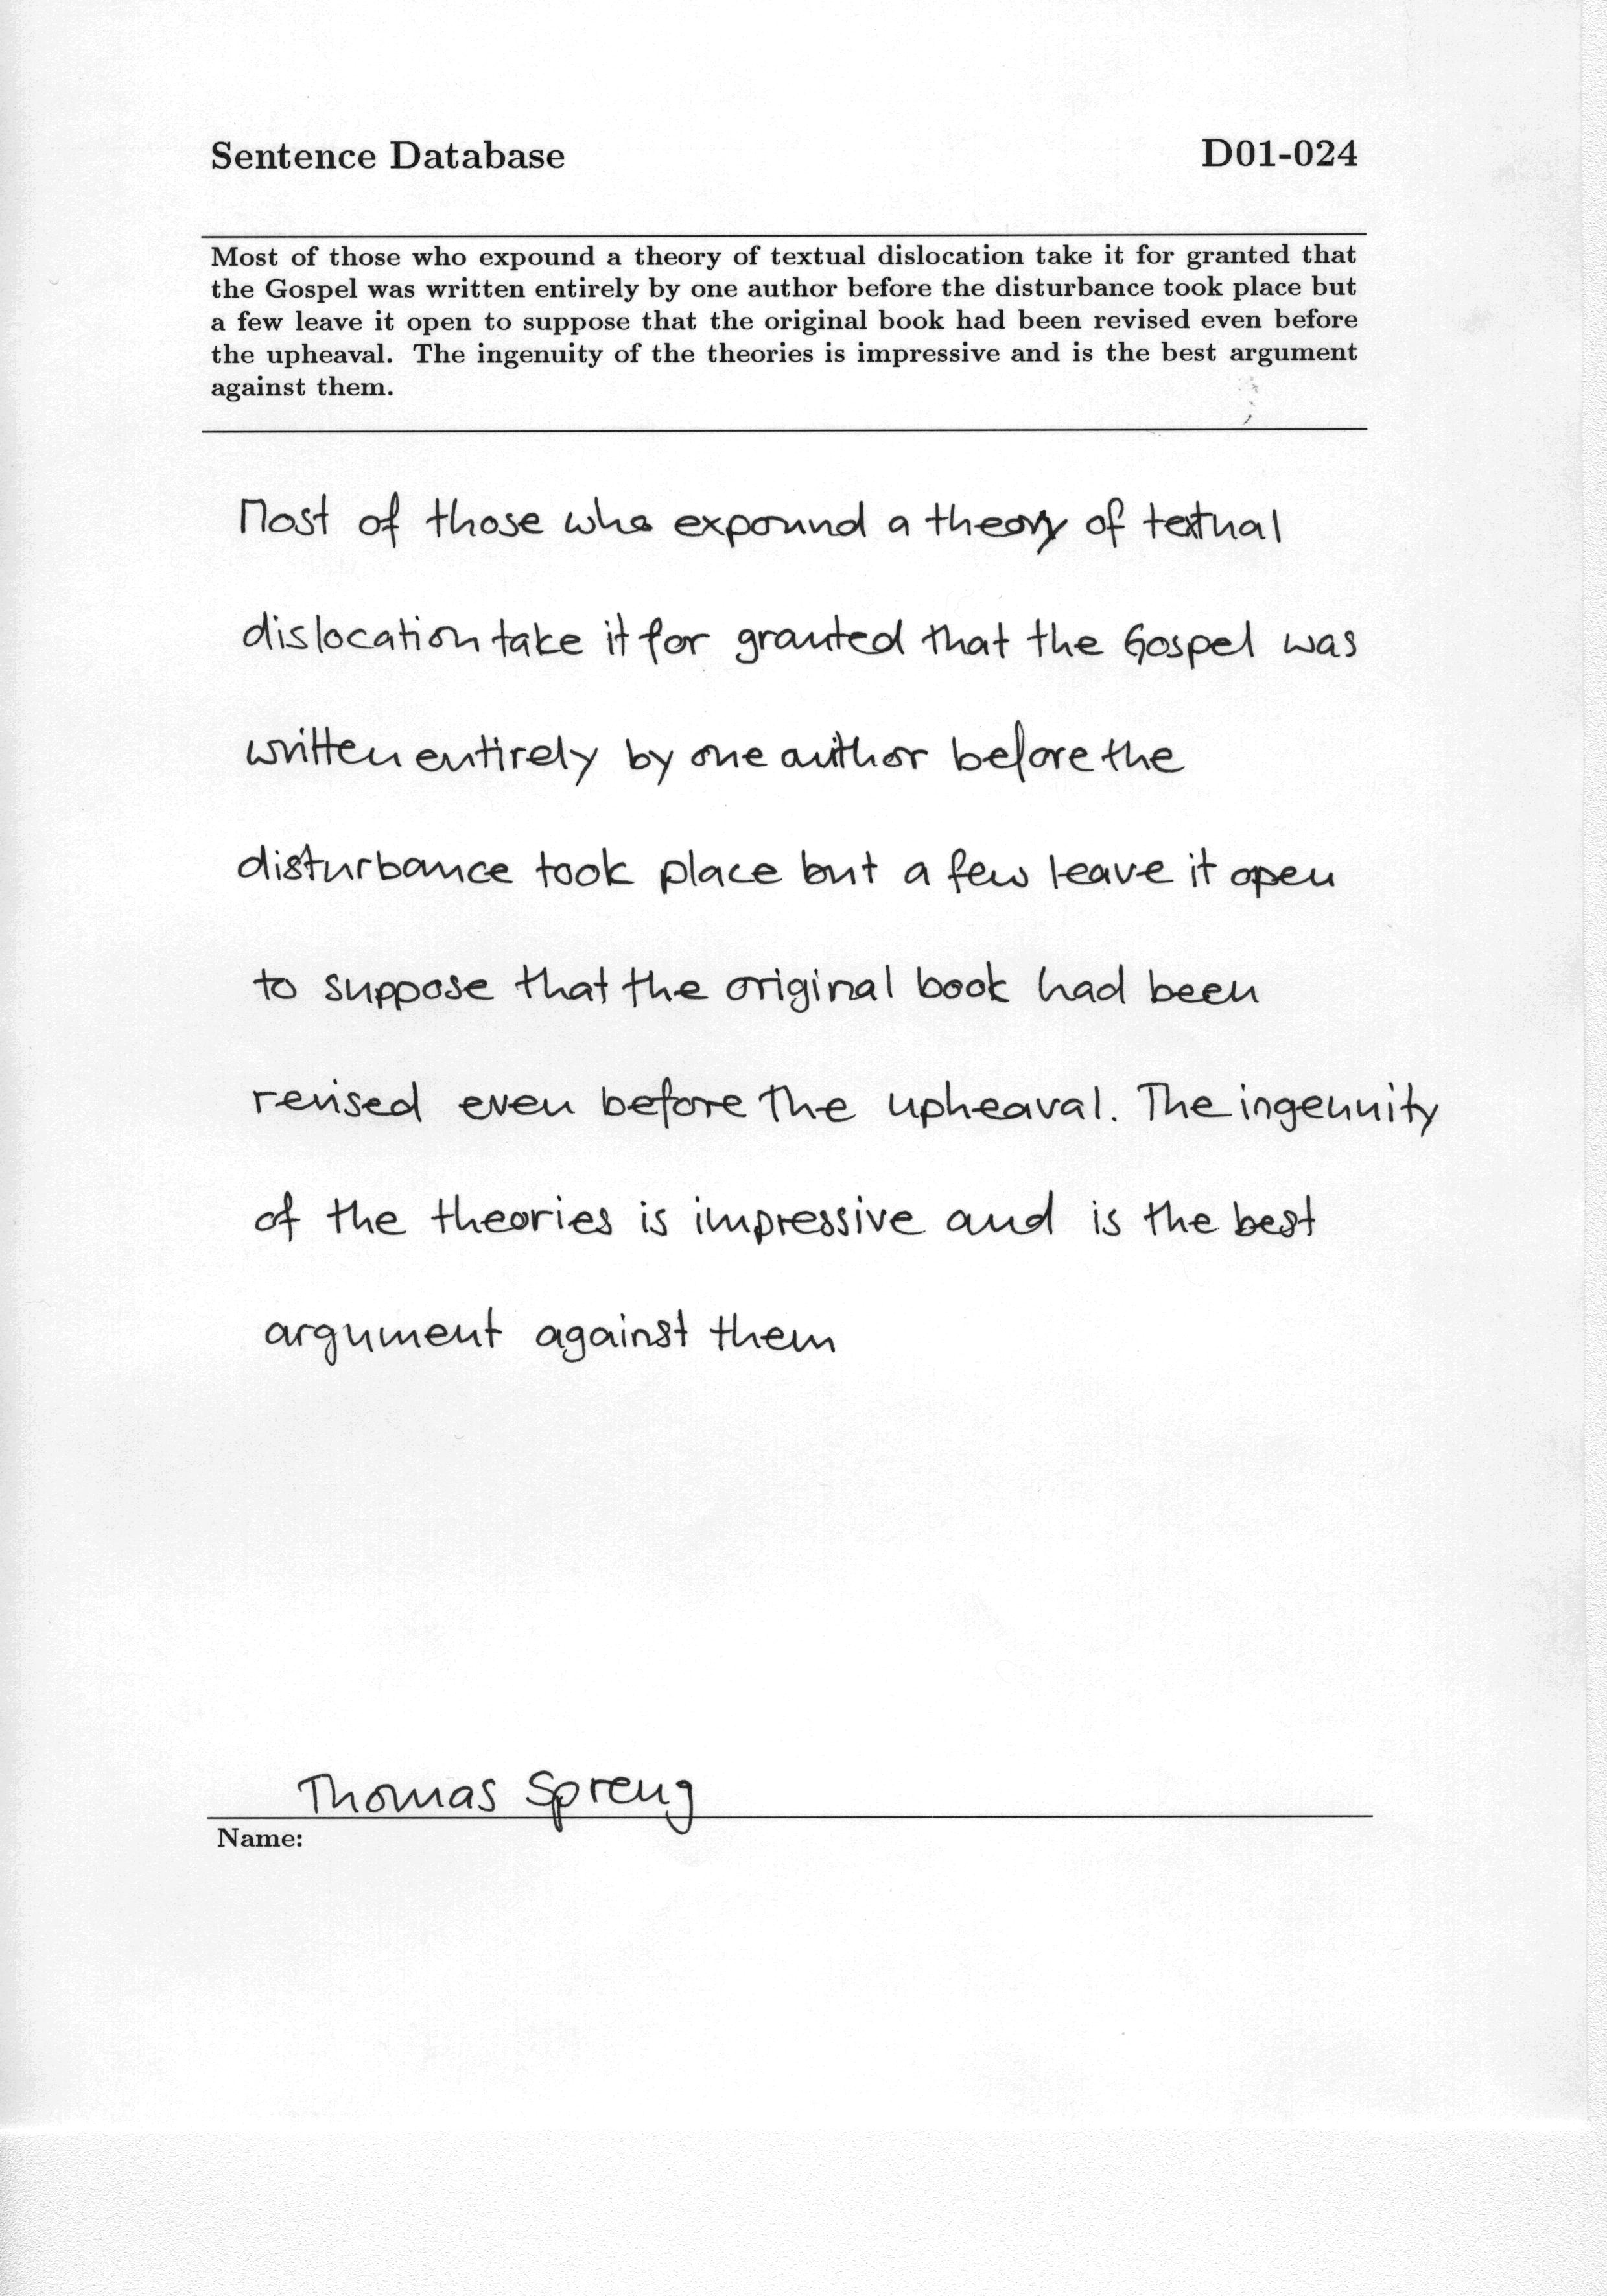 Sentence Database D01-024
Most of those who expound a theory of textual dislocation take it for granted that
the Gospel was written entirely by one author before the disturbance took place but
a few leave it open to suppose that the original book had been revised even before
the upheaval. The ingenuity of the theories is impressive and is the best argument
against them.
Most of those who expound a theory of textual
dislocation take it for granted that the Gospel was
written entirely by one author before the
disturbance took place but a few leave it open
to suppose that the original book had been
revised even before the upheaval. The ingenuity
of the theories is impressive and is the best
argument against them
Thomas Spreng
Name: